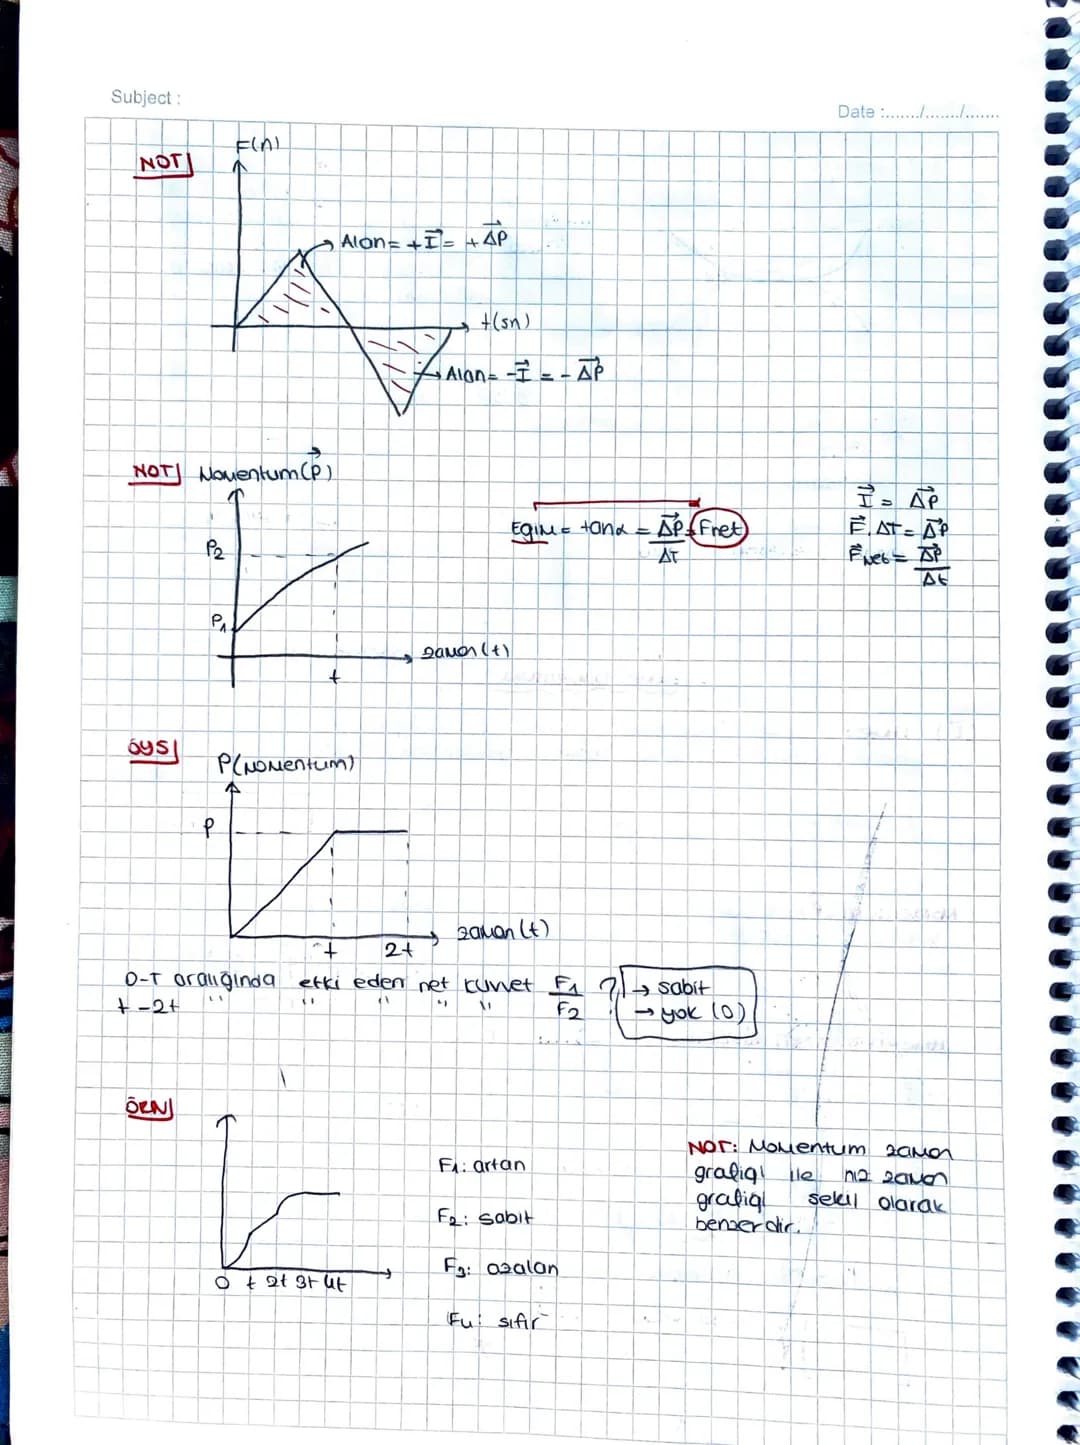 Subject :
Date :......../......../........
NOT
F(n)
Alan= +I⃗ = +ΔP⃗
t(sn)
Alan= -I⃗ = -ΔP⃗
NOT Momentum(P⃗)
P2
P1
zaman(t)
t
Eğim = tanα = ΔP⃗/ΔT = Fnet
I⃗ = ΔP⃗
F⃗.ΔT = ΔP⃗
F⃗Net = ΔP⃗/Δt
ÖYS
P(momentum)
P
zaman(t)
t 2t
0-T aralığında etki eden net kuvvet F1 ? → sabit
t-2t " " " " " F2 → yok (0)
ÖRN
0 t 2t 3t 4t
F1: artan
F2: sabit
F3: azalan
F4: sıfır
NOT: Momentum zaman
grafiği ile hız zaman
grafiği şekil olarak
benzerdir.